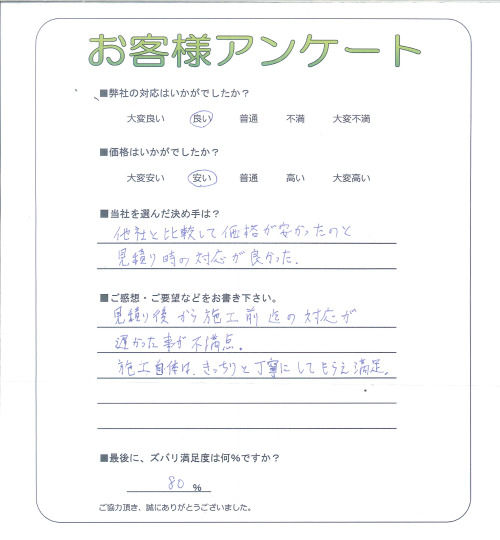 お客様アンケート
■弊社の対応はいかがでしたか？
大変良い 良い 普通 不満 大変不満
■価格はいかがでしたか？
大変安い 安い 普通 高い 大変高い
■当社を選んだ決め手は？
他社と比較して価格が安かったのと
見積り時の対応が良かった.
■ご感想・ご要望などをお書き下さい。
見積り後から施工前迄の対応が
遅かった事が不満点.
施工自体は、きっちりと丁寧にしてもらえ満足.
■最後に、ズバリ満足度は何％ですか？
80 %
ご協力頂き、誠にありがとうございました。